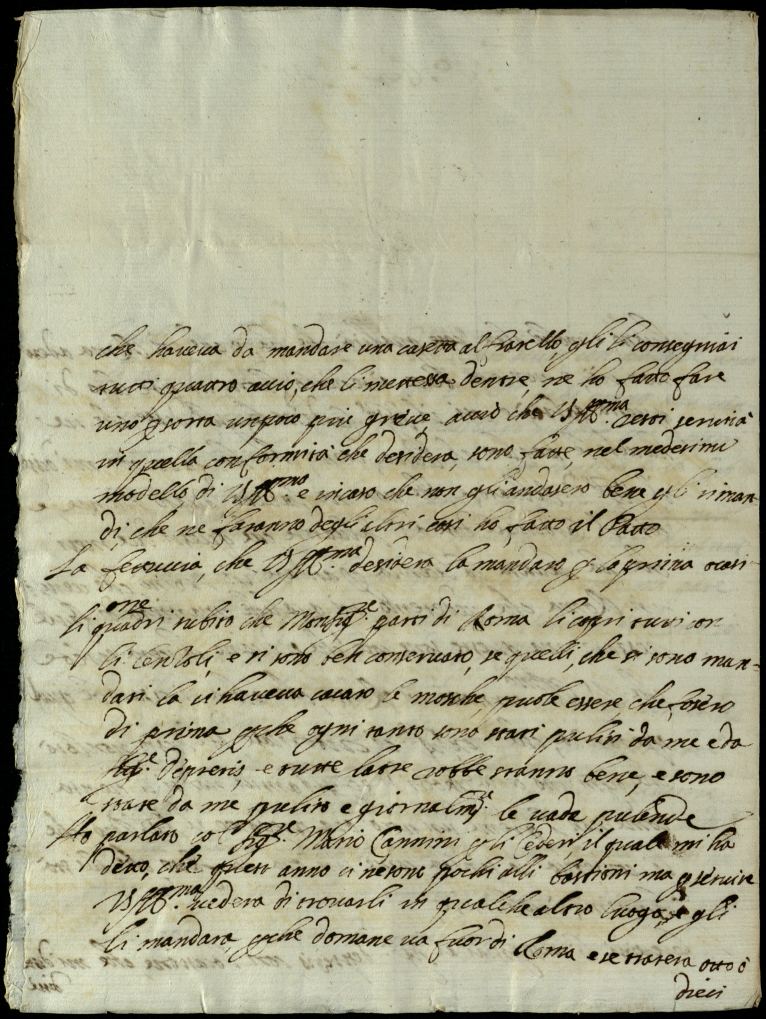 che haveva da mandare una casetta al fratello, gli li consegniai
tutti quattro acciò, che li mettessa dentre, ne ho fatto fare
uno p sorta unpoco più greve, acciò che VS Ill.ma resti servità
in quella conformità che desidera, sono fatte, nel medesimo
modello di VS Ill.ma e incaso che non gli andasero bene gli riman-
di, che ne faranno degl'altri così ho fatto il Patto
La fettuccia, che VS Ill.ma desidera la mandarò p la prima ocasi-
one
li quadri subito che Monsig.re partì di Roma li coprì tutti con
li lenzoli, e si sono ben conservati, se quelli, che si sono man-
dati la ci haveva cacato le mosche, puole essere che fosero
di prima perche ogni tanto sono stati puliti da me e da
Sig.r Depretis, e tutte laltre robbe stanno bene, e sono
state da me pulite e giornalm.te le vado pulendo
Ho parlato col Sig.re Mario Cannini p li federi il quale mi ha
detto, che quest anno ci ne sono pochi alli bastioni ma p servire
VS Ill.ma vederà di trovarli in qualche altro luogo, e gli
li mandarà, perche domane va fuor di Roma e se troverà otto ò
dieci